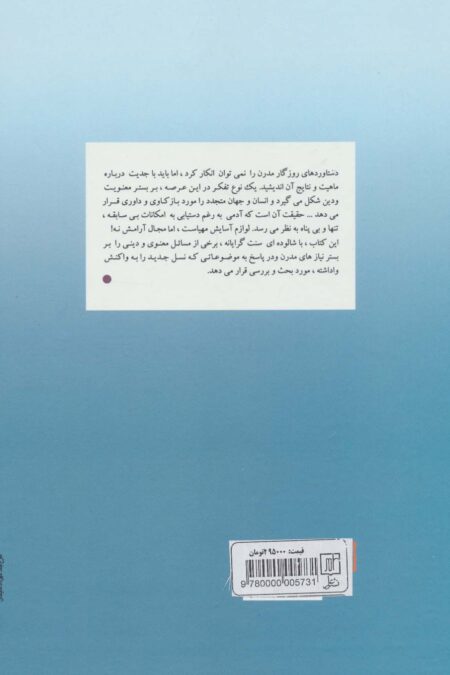 دستاوردهای روزگار مدرن را نمی توان انکار کرد ، اما باید با جدیت درباره
ماهیت و نتایج آن اندیشید. یک نوع تفکر در این عرصه ، بر بستر معنویت
ودین شکل می گیرد و انسان و جهان متجدد را مورد بازکاوی و داوری قرار
می دهد ... حقیقت آن است که آدمی به رغم دستیابی به امکانات بی سابقه ،
تنها و بی پناه به نظر می رسد. لوازم آسایش مهیاست ، اما مجال آرامش نه!
این کتاب ، با شالوده ای سنت گرایانه ، برخی از مسائل معنوی و دینی را بر
بستر نیاز های مدرن ودر پاسخ به موضوعاتی که نسل جدید را به واکنش
واداشته ، مورد بحث و بررسی قرار می دهد.
قیمت: ۲۹۵۰۰۰تومان
9 780000 005731